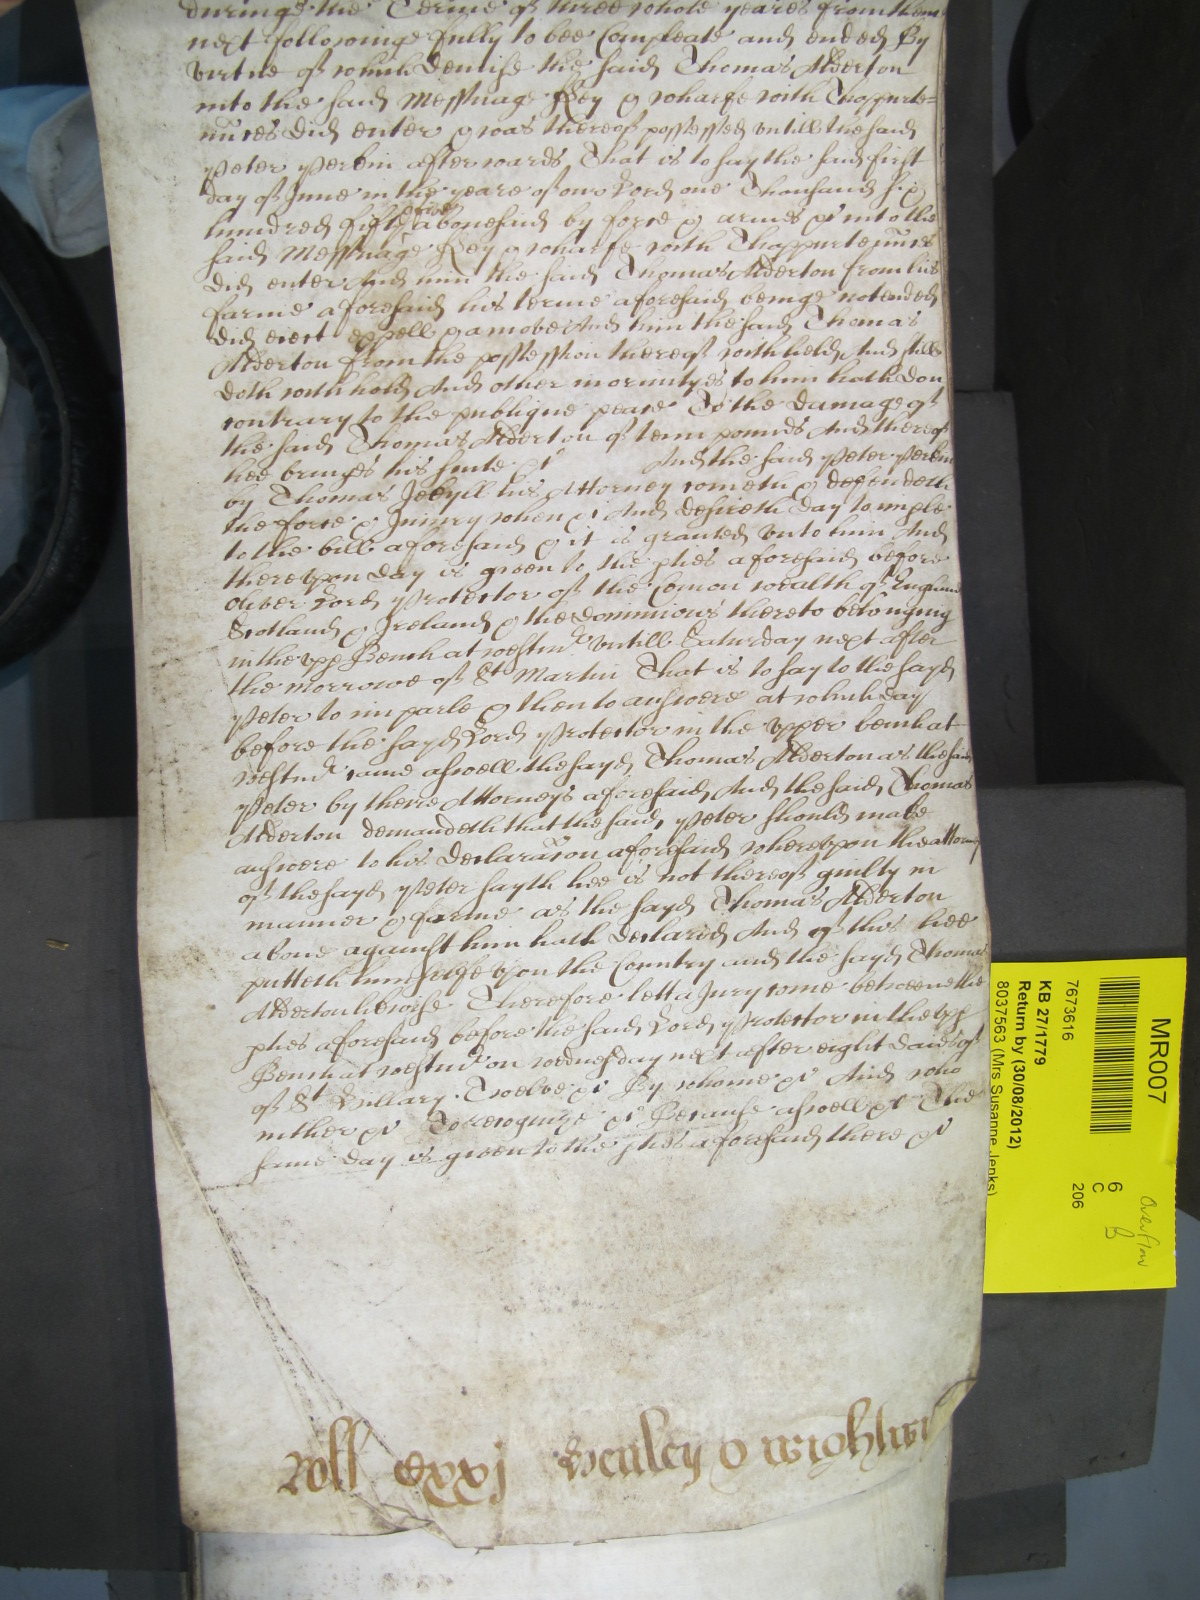 during the Terme of three whole yeares from them
next followinge fully to bee Compleate and ended By
virtue of which demise the said Thomas Alderton
into the said Messuage Key & wharfe with Thappurte=
nnces did enter & was thereof possessed untill the said
Peter Perkin afterwards That is to say the said first
day of June in the yeare of our Lord one Thousand six
hundred fifty abovesaid by force & armes &c into the
said Messuage Key & wharfe with Thappurtennces
did enter And him the said Thomas Alderton from his
farme aforesaid his terme aforesaid beinge not ended
did eject expell & amove And him the said Thomas
Alderton from the possession thereof withheld And still
doth withhold And other iniuryes to him hath don
contrary to the publique peace To the damage of
the said Thomas Alderton of tenn pounds And thereof
hee bringes his suite &c And the said Peter Perkin
by Thomas Jekyll his Attorney cometh & defendeth
the force & Iniury when &c And desireth day to imple
to the bill aforesaid & it is granted unto him And
thereupon day is given to the pties aforesaid before
Oliver Lord Protector of the Comon wealth of England
Scotland & Ireland & the Dominions thereto belonging
in the upp Bench at westmr untill Saturday next after
the morrowe of St Martin That is to say to the sayd
Peter to imparle & then to answere at which day
before the sayd Lord Protector in the upper bench at
westmr came aswell the sayd Thomas Alderton as the said
Peter by theire Attorneys aforesaid And the said Thomas
Alderton demandeth that the said Peter should make
answere to his declaracon aforesaid whereupon the attorny
of the sayd Peter sayth hee is not thereof guilty in
manner & forme as the sayd Thomas Alderton
above against him hath declared And of this hee
putteth himselfe upon the Country and the sayd Thomas
Alderton likewise Therefore lett a Jury come betweene the
pties aforesaid before the said Lord Protector in the upp
Bench at westmr on wednesday next after eight daies of
of St Hillary. Twelve &c By whome &c And who
neither &c To recognize &c Because aswell &c The
same day is given to the pties aforesaid there &c
Roll cxxj Henley & wightwi
MR007
7673616
KB 27/1779
Return by (30/08/2012)
8037563 (Mrs Susanne Jenks)
6
C
206
Overflow
B